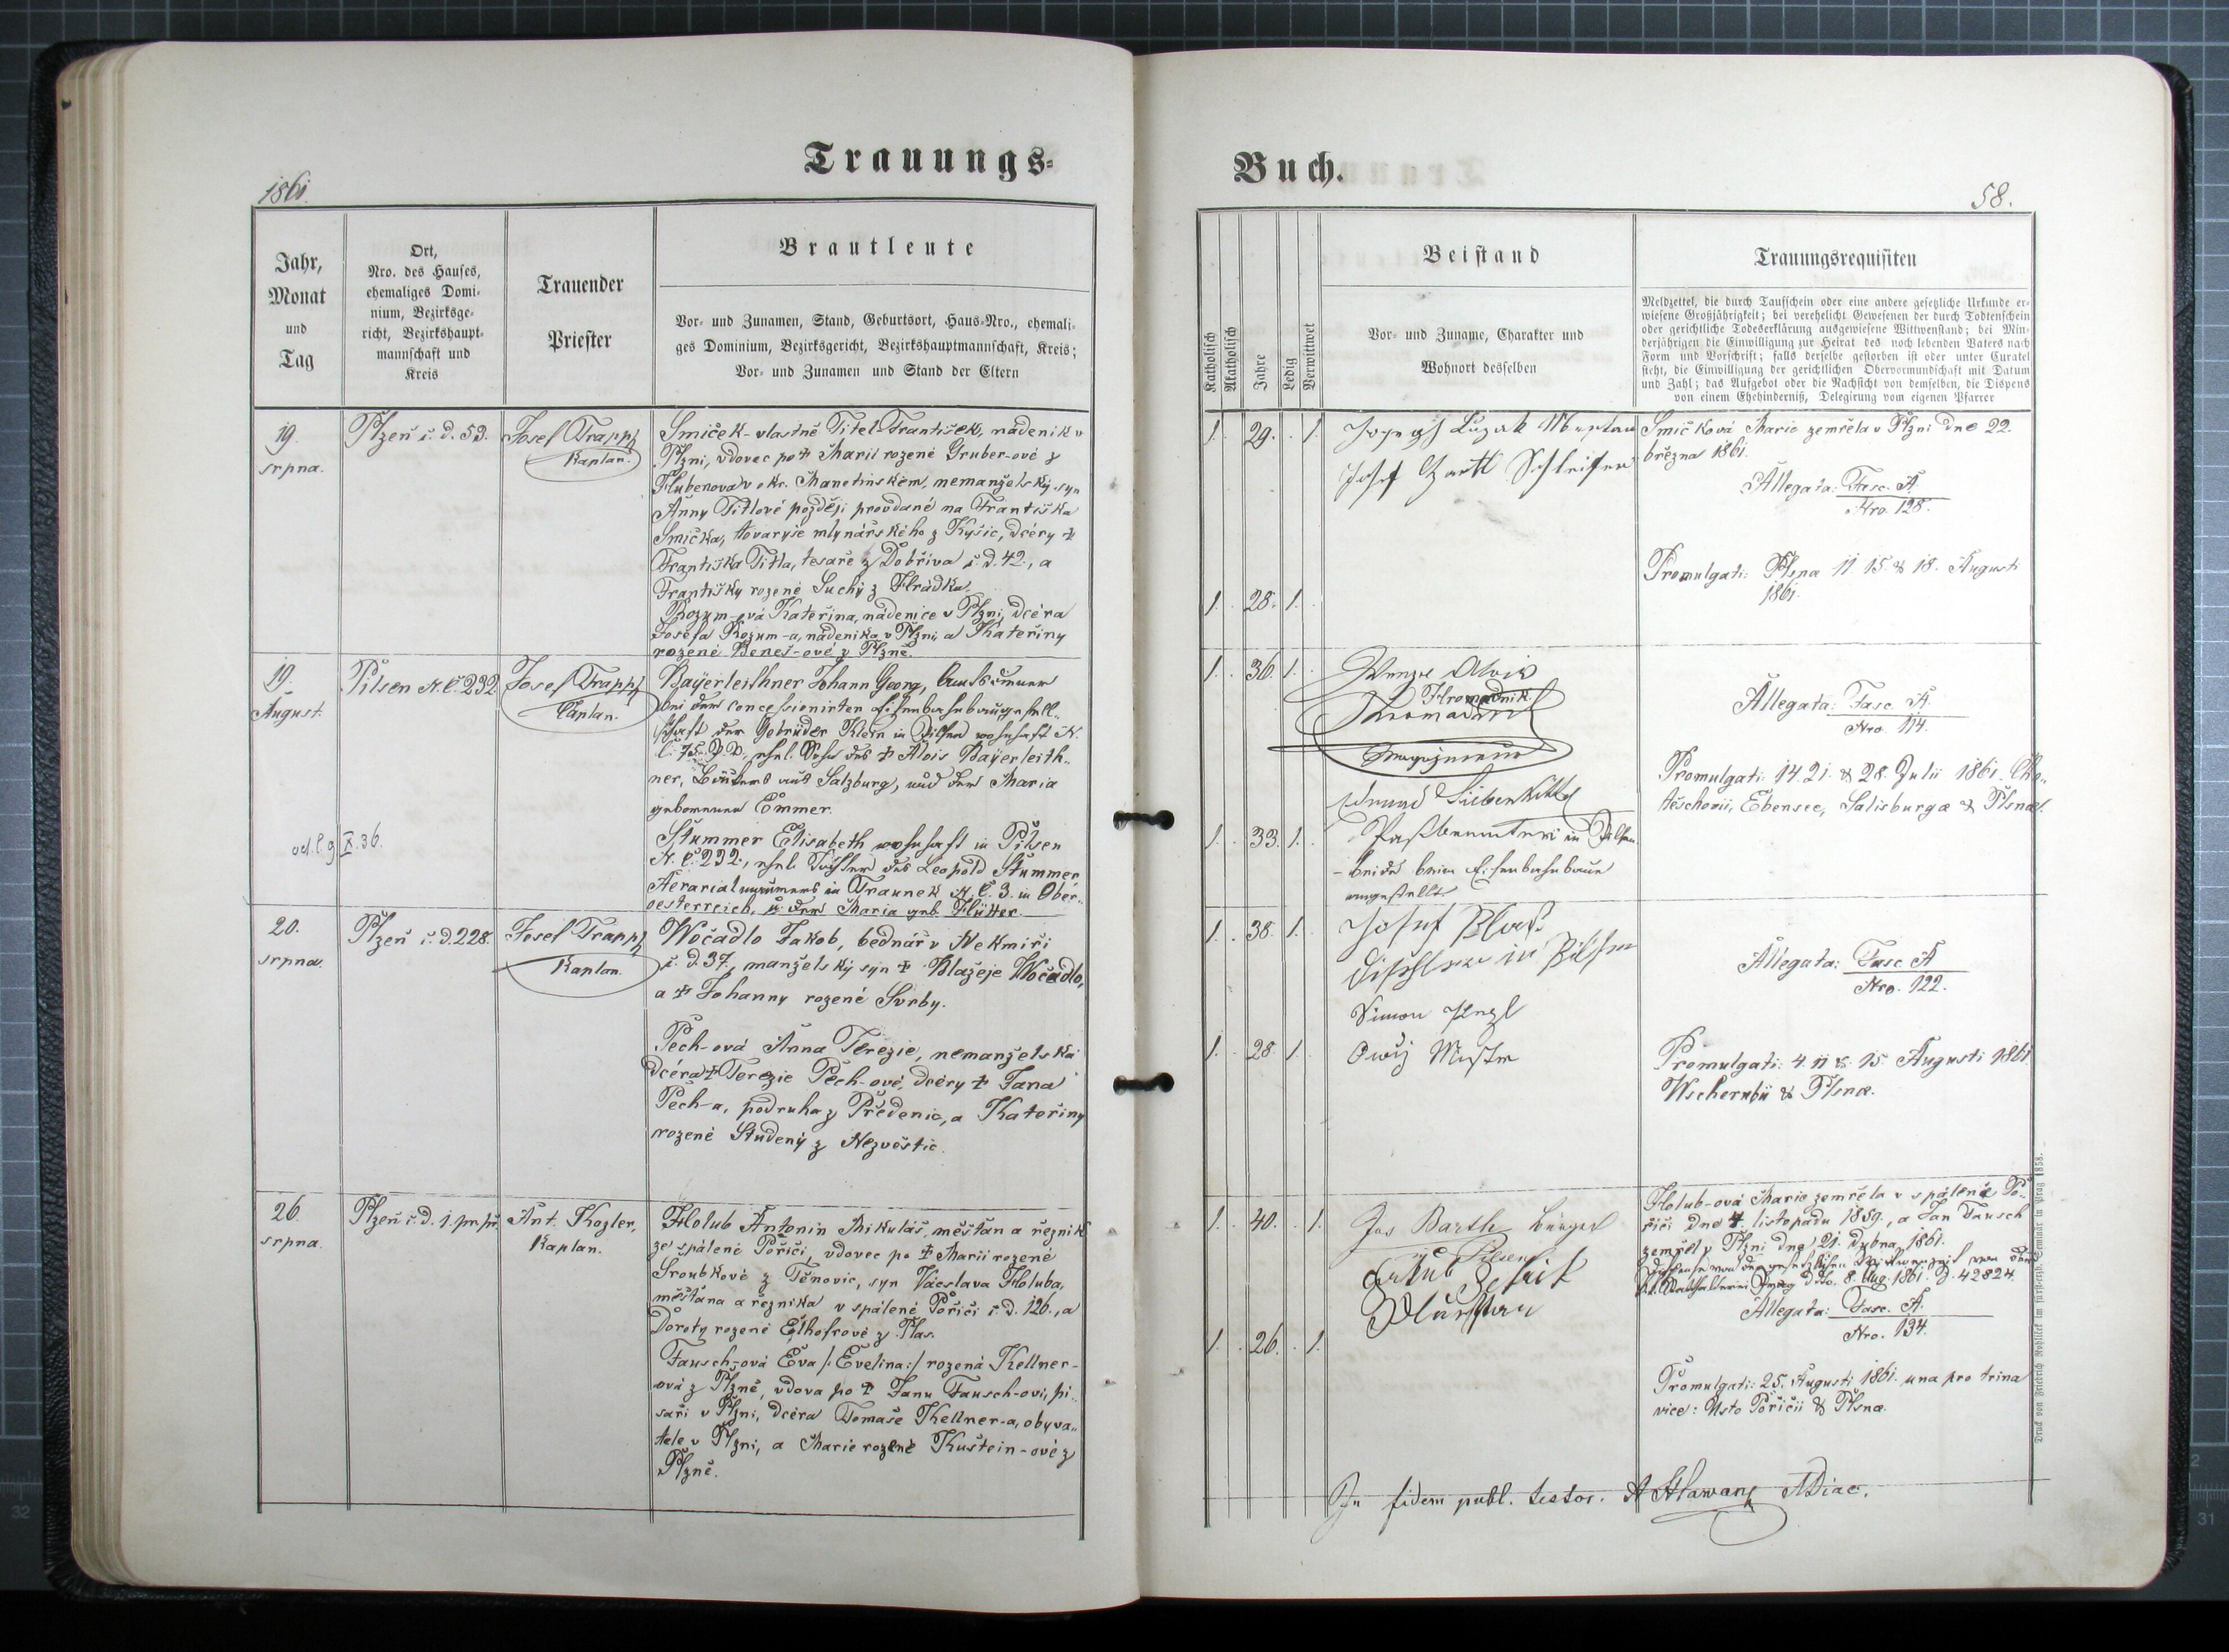 Trauungs-
1861.
Jahr,
Monat
und
Tag
Ort,
Nro. des Hauses,
ehemaliges Domi-
nium, Bezirksge-
richt, Bezirkshaupt-
mannschaft und
Kreis
Trauender
Priester
Brautleute
Vor- und Zunamen, Stand, Geburtsort, Haus-Nro., ehemali-
ges Dominium, Bezirksgericht, Bezirkshauptmannschaft, Kreis;
Vor- und Zunamen und Stand der Eltern
19.
srpna.
Plzeň č. d. 53.
Josef Trappl
Kaplan.
Smiček-vlastně Titel František, nádeník v
Plzni, vdovec po † Marii rozené Gruber-ové z
Hubenova v okr. Manetinském, nemanželský syn
Anny Titlové později provdané na Františka
Smička, tovaryše mlynářského z Kyšic, dcéry †
Františka Titla, tesaře z Dobříva č. d. 42., a
Františky rozené Suchý z Hrádka.
Rozum-ová Kateřina, nádenice v Plzni, dcéra
Josefa Rozum-a, nádeníka v Plzni, a Kateřiny
rozené Beneš-ové z Plzně.
19.
August.
Pilsen N. C. 232.
Josef Trappl
Caplan.
Bayerleithner Johann Georg,
bei der concessionirten Eisenbahnbaugesell-
schaft der Gebrüder Klein in Pilsen wohnhaft N.
C. 75. ehel. Sohn des † Alois Bayerleith-
ner, aus Salzburg, und der Maria
gebornenen Emmer.
Stummer Elisabeth wohnhaft in Pilsen
N. C. 232., ehel. Tochter des Leopold Stummer
in Traunek N. C. 3. in Ober-
oesterreich, u. der Maria geb. Hütter.
od. l. 9/X. 36.
20.
srpna.
Plzeň č. d. 228.
Josef Trappl
Kaplan.
Wočadlo Jakob, bednář v Nekmiři
č. d. 37. manželský syn † Blažeje Wočadlo,
a † Johanny rozené Svrby.
Pech-ová Anna Terezie, nemanželská
dcéra † Terezie Pech-ové, dcéry † Jana
Pech-a, podruha z Předenic, a Kateřiny
rozené Studený z Nezvěstic.
26.
srpna.
Plzeň č. d. 1. pr. př.
Ant. Kozler,
Kaplan.
Holub Antonin Mikuláš, měšťan a řezník
ze spálené Poříčí, vdovec po † Marii rozené
Sroubkové z Těnovic, syn Václava Holuba,
měšťana a řezníka v spálené Poříčí č. d. 126., a
Doroty rozené Elhofrové z Plas.
Fausch-ová Eva /:Evelina:/ rozená Kellner-
ová z Plzně, vdova po † Janu Fausch-ovi, pí-
saři v Plzni, dcéra Tomaše Kellner-a, obyva-
tele v Plzni, a Marie rozené Kuštein-ové z
Plzně.
Buch.
58.
Katholisch
Akatholisch
Jahre
Ledig
Verwittwet
Beistand
Vor- und Zuname, Charakter und
Wohnort desselben
Trauungsrequisiten
Meldzettel, die durch Taufschein oder eine andere gesetzliche Urkunde er-
wiesene Großjährigkeit; bei verehelicht Gewesenen der durch Todtenschein
oder gerichtliche Todeserklärung ausgewiesene Wittwenstand; bei Min-
derjährigen die Einwilligung zur Heirat des noch lebenden Vaters nach
Form und Vorschrift; falls derselbe gestorben ist oder unter Curatel
steht, die Einwilligung der gerichtlichen Obervormundschaft mit Datum
und Zahl; das Aufgebot oder die Nachsicht von demselben, die Dispens
von einem Ehehinderniß, Delegirung vom eigenen Pfarrer
1. 29. 1.
Josef Bartl Schleifer
Smičková Marie zemřela v Plzni dne 22.
března 1861.
Allegata: Fasc. A.
Nro. 128.
1. 28. 1.
Promulgati: Plsna 11 15 & 18. Augusti
1861.
1. 36. 1.
Hromadnik
Allegata: Fasc. A.
Nro. 114.
Promulgati: 14. 21. & 28. Julii 1861.
Ebensee, Salisburgæ & Plsnæ.
1. 33. 1.
in Pilsen
- beide beim Eisenbahnbaue
angestellt.
1. 38. 1.
Josef
Tischler in Pilsen
Allegata: Fasc. A
Nro. 122.
Simon
1. 28. 1.
Promulgati: 4. 11 & 15 Augusti 1861
Wscherubii & Plsnæ.
1. 40. 1.
Barth Bürger
in Pilsen
Jakub
Holub-ová Marie zemřela v spálené Po-
říčí dne 4. listopadu 1859., a Jan Fausch
zemřel v Plzni dne 21. dubna 1861.
Prag dto. 8. Aug. 1861. D. 42824.
Allegata: Fasc. A.
Nro. 134.
1. 26. 1.
Promulgati: 25. Augusti 1861. una pro trina
vice: Usto Poříčii & Plsnæ.
In fidem publ. testor.
Druck von Friedrich Rohliček im fürst-erzb. Seminär in Prag 1858.